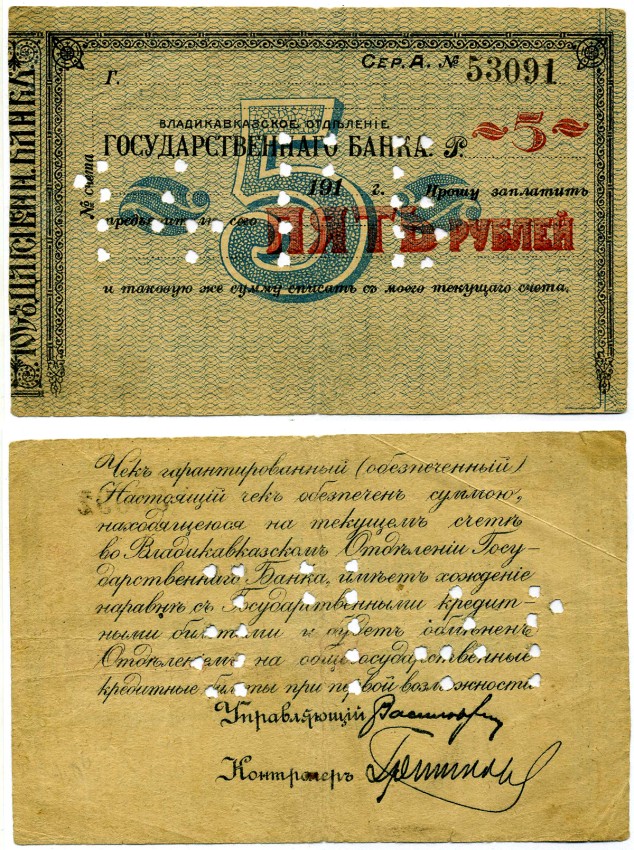 Сер. А. № 53091
Г.
ВЛАДИКАВКАЗСКОЕ ОТДѢЛЕНІЕ
ГОСУДАРСТВЕННАГО БАНКА. Р. 5
№ счета
191 г. Прошу заплатить
5
ПЯТЬ РУБЛЕЙ
и таковую же сумму списать съ моего текущаго счета.
Чекъ гарантированный (обезпеченный)
Настоящій чекъ обезпечен суммою,
находящеюся на текущемъ счетѣ
во Владикавказскомъ Отдѣленіи Госу-
дарственнаго Банка, имѣетъ хожденіе
наравнѣ съ Государственными кредит-
ными билетами и будетъ обмѣненъ
Отдѣленіемъ на общегосударственные
кредитные билеты при первой возможности.
Управляющій
Контролеръ